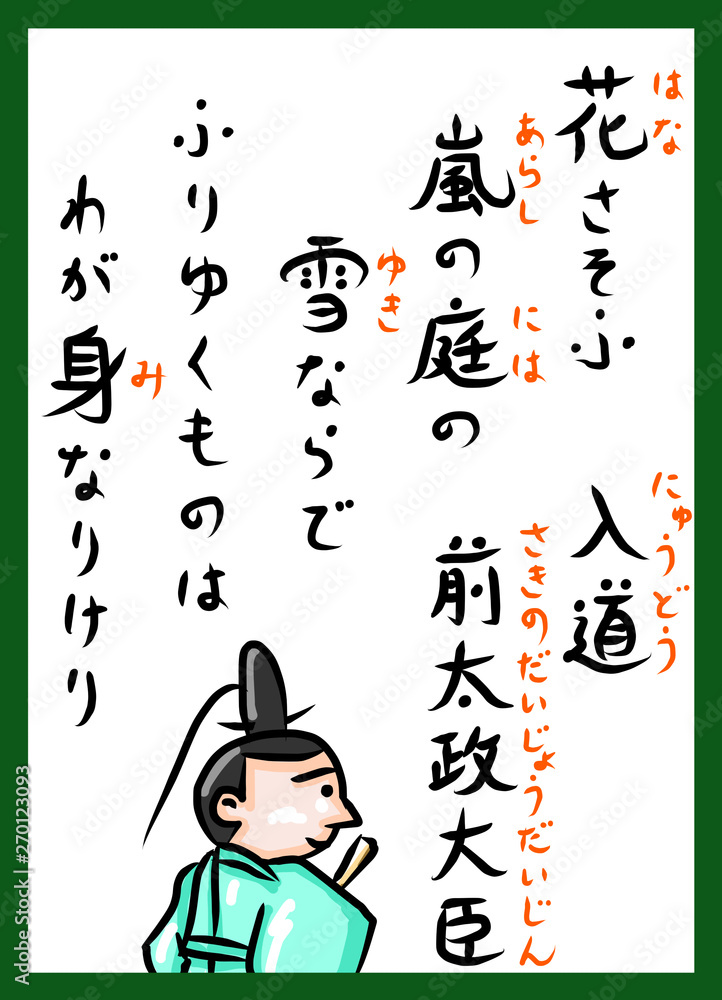 花さそふ
はな
入道
にゅうどう
嵐の庭の
あらし
には
前太政大臣
さきのだいじょうだいじん
雪ならで
ゆき
ふりゆくものは
わが身なりけり
み
Adobe Stock | #270123093